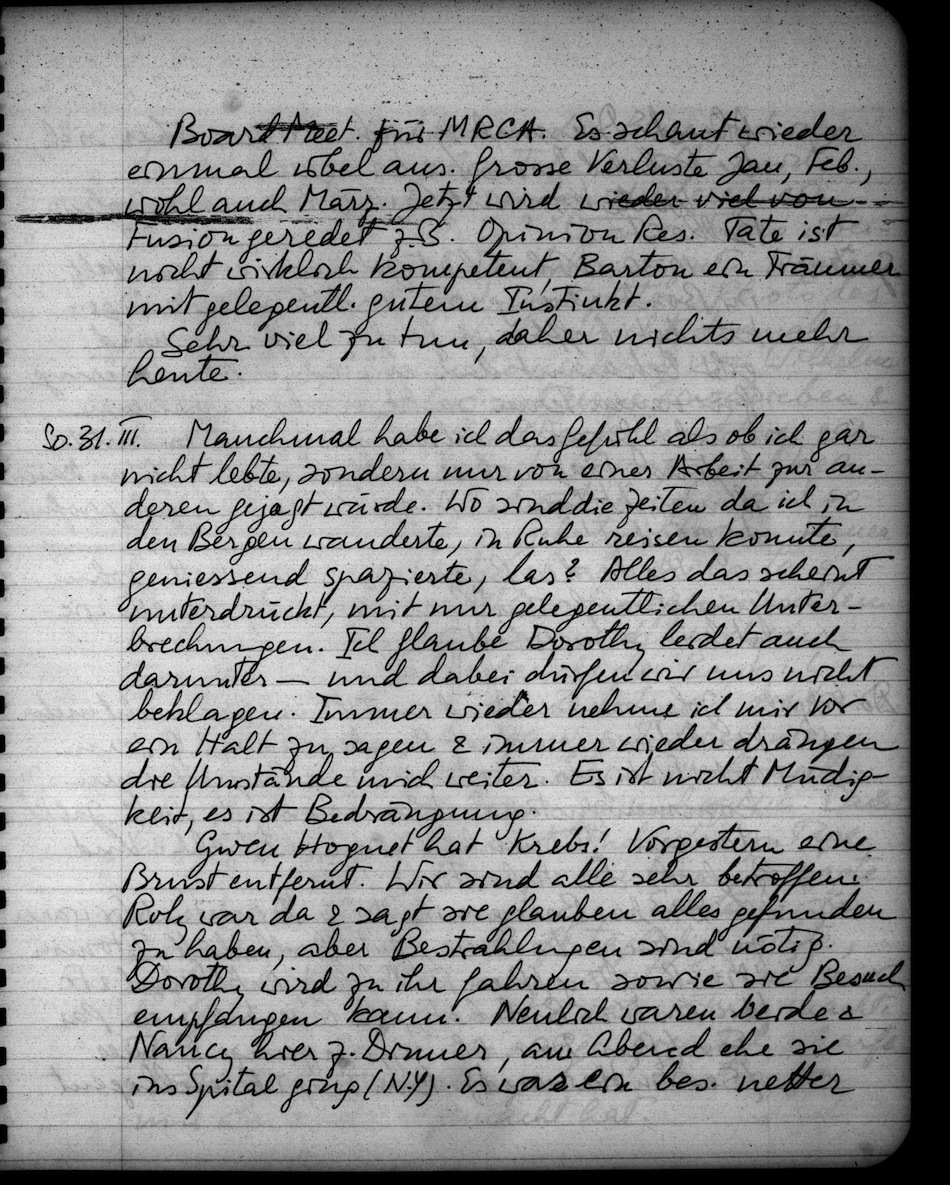 Board Meet. für MRCA. Es schaut wieder
einmal übel aus. Grosse Verluste Jan, Feb.,
wohl auch März. Jetzt wird wieder viel von
Fusion geredet z.B. Opinion Res. Tate ist
nicht wirklich kompetent, Barton ein Träumer
mit gelegentl. gutem Instinkt.
Sehr viel zu tun, daher nichts mehr
heute.
So. 31. III. Manchmal habe ich das Gefühl als ob ich gar
nicht lebte, sondern nur von einer Arbeit zur an-
deren gejagt würde. Wo sind die Zeiten da ich in
den Bergen wanderte, in Ruhe reisen konnte,
geniessend spazierte, las? Alles das scheint
unterdrückt, mit nur gelegentlichen Unter-
brechungen. Ich glaube Dorothy leidet auch
darunter — und dabei dürfen wir uns nicht
beklagen. Immer wieder nehme ich mir vor
ein Halt zu sagen & immer wieder drängen
die Umstände mich weiter. Es ist nicht Müdig-
keit, es ist Bedrängung.
Gwen hat Krebs! Vorgestern eine
Brust entfernt. Wir sind alle sehr betroffen.
war da & sagt sie glauben alles gefunden
zu haben, aber Bestrahlungen sind nötig.
Dorothy wird zu ihr fahren sowie sie Besuch
empfangen kann. Neulich waren beide &
Nancy hier z. Dinner, am Abend ehe sie
ins Spital ging (N.Y). Es war ein bes. netter